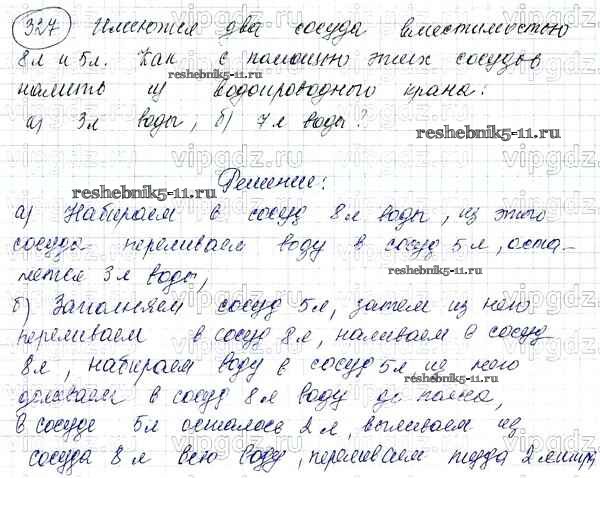 327 Имеются два сосуда вместимостью
8л и 5л. Как с помощью этих сосудов
налить из водопроводного крана:
а) 3л воды, б) 7л воды?
Решение:
а) Набираем в сосуд 8л воды, из этого
сосуда переливаем воду в сосуд 5л, оста-
нется 3л воды,
б) Заполняем сосуд 5л, затем из него
переливаем в сосуд 8л, наливаем в сосуд
8л, набираем воду в сосуд 5л из него
доливаем в сосуд 8л воду до полна,
в сосуде 5л осталось 2л, выливаем из
сосуда 8л всю воду, переливаем туда 2 литра
reshebnik5-11.ru
reshebnik5-11.ru
reshebnik5-11.ru
reshebnik5-11.ru
reshebnik5-11.ru
vipgdz.ru